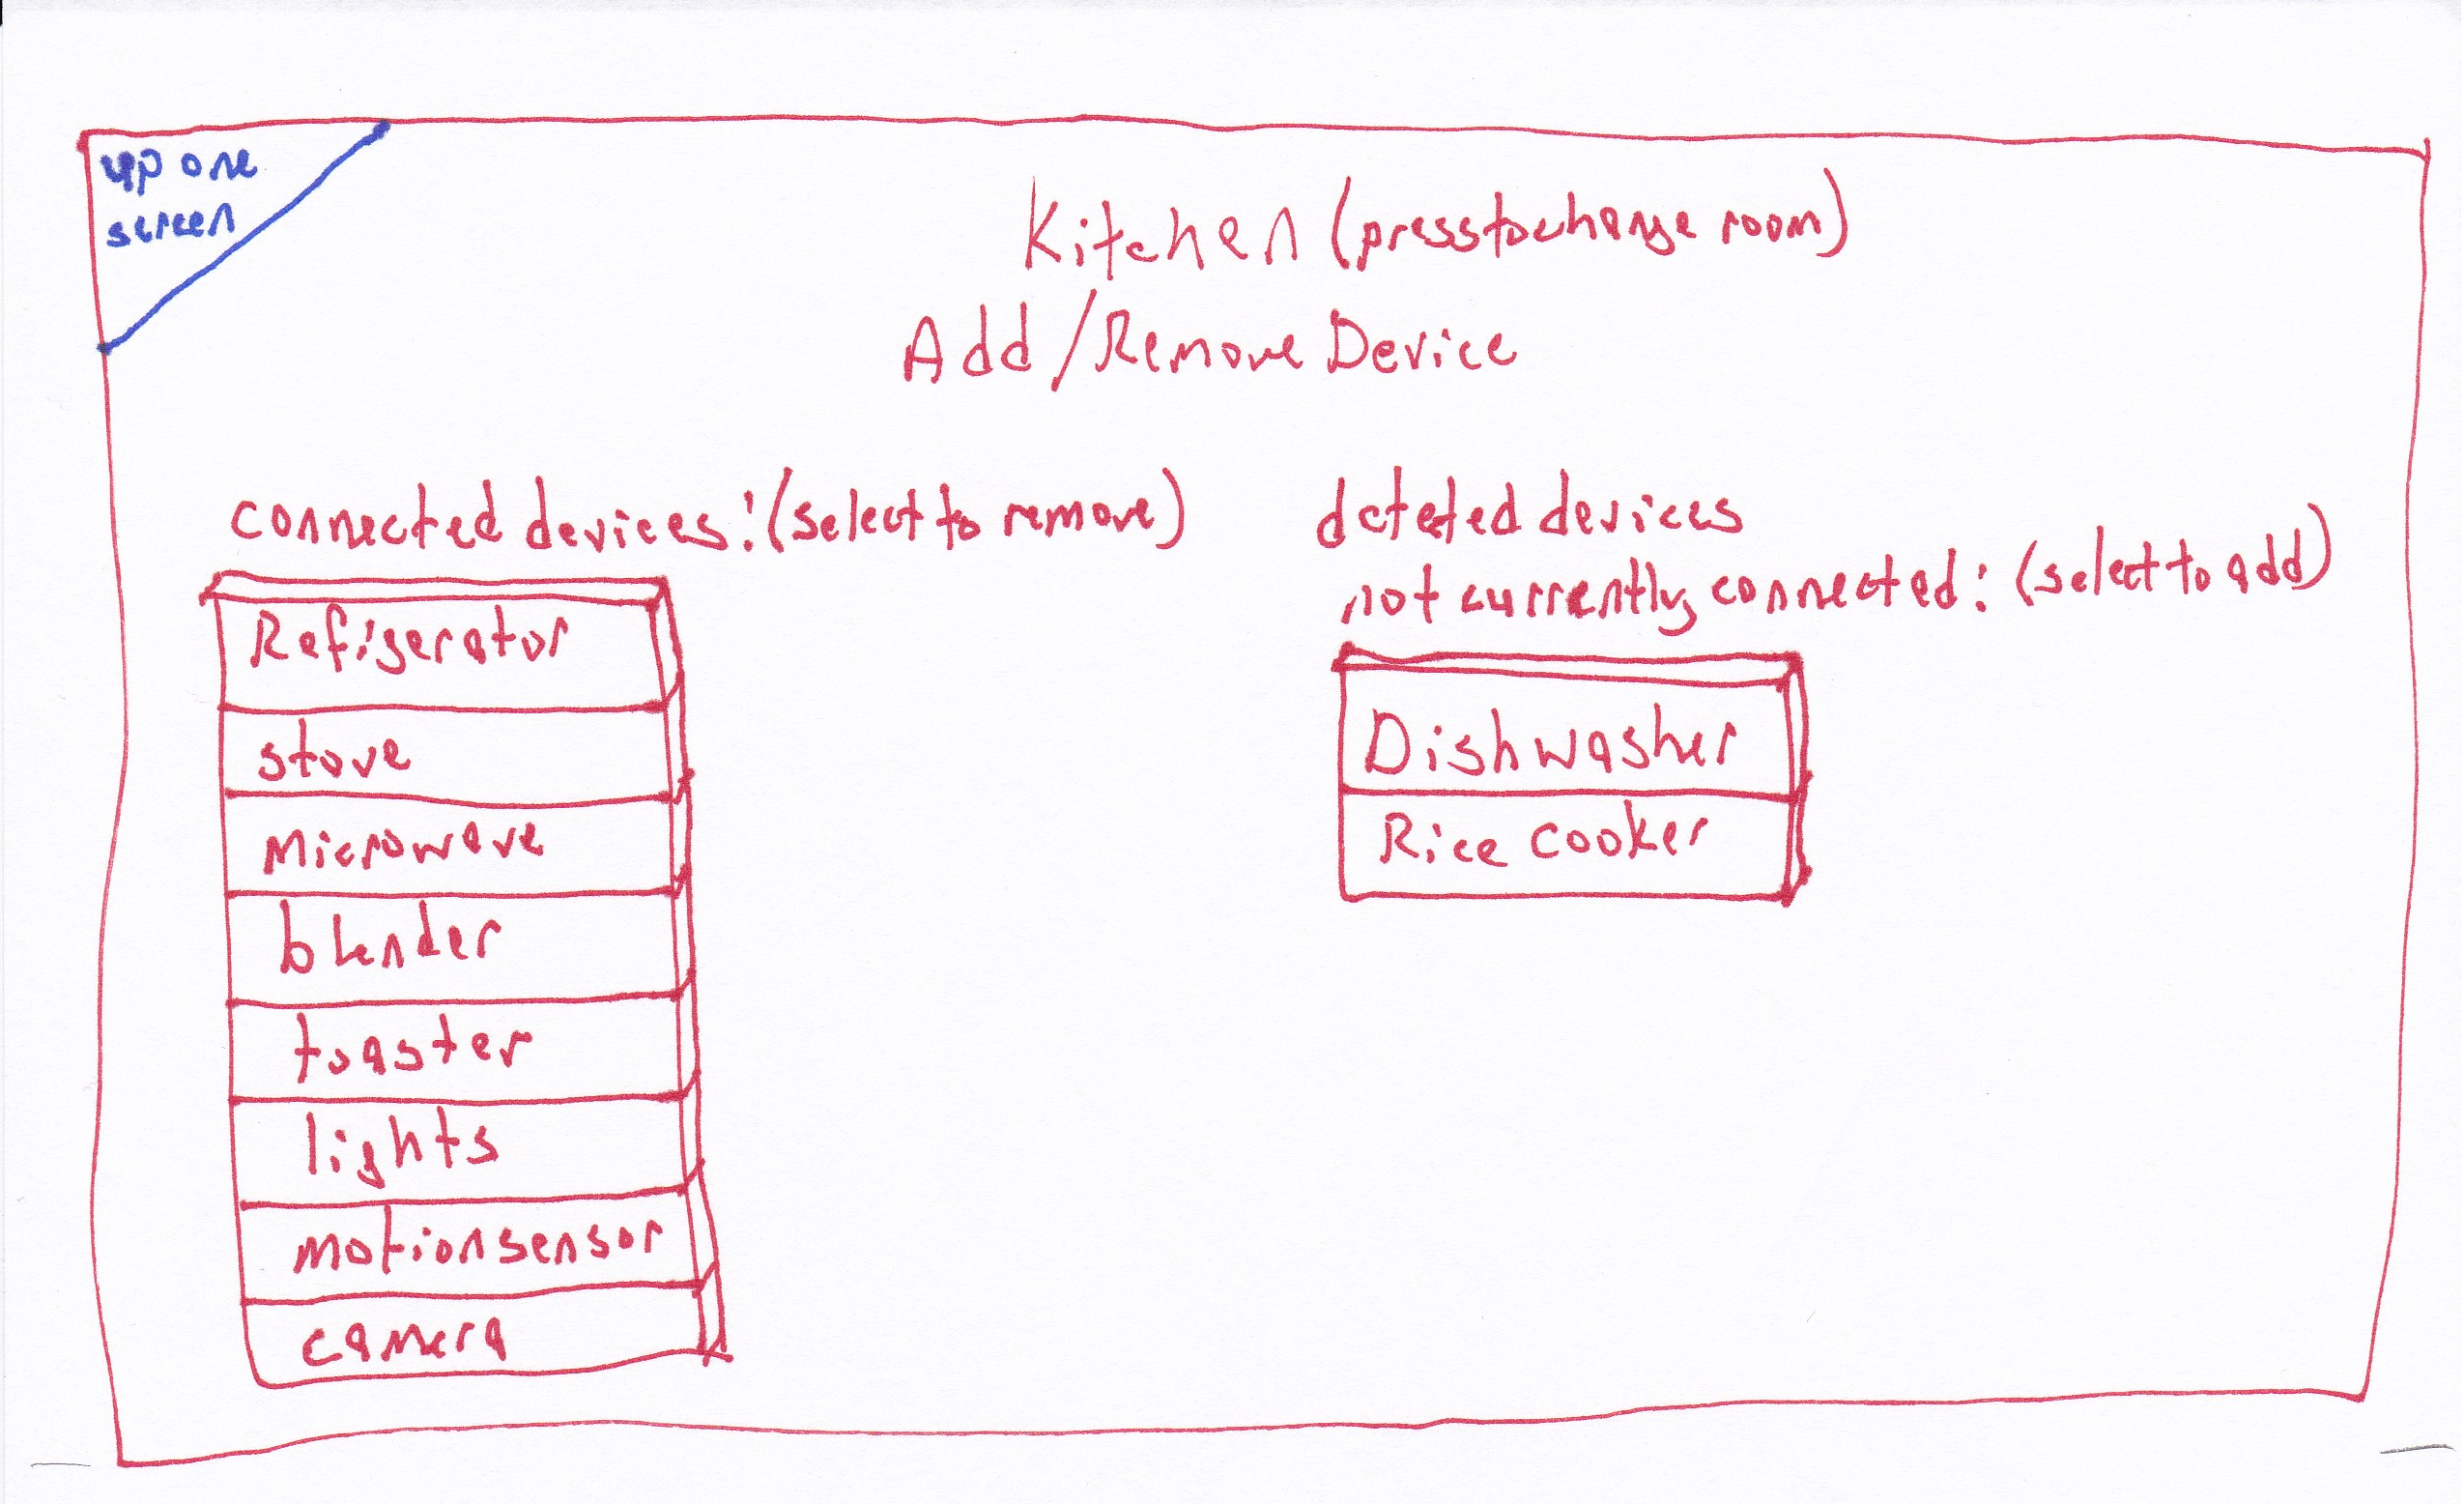 up one
screen
Kitchen (press to change room)
Add/Remove Device
connected devices: (select to remove)
Refigerator
stove
Microwave
blender
toaster
lights
motion sensor
camera
deteted devices
not currently connected: (select to add)
Dishwasher
Rice cooker